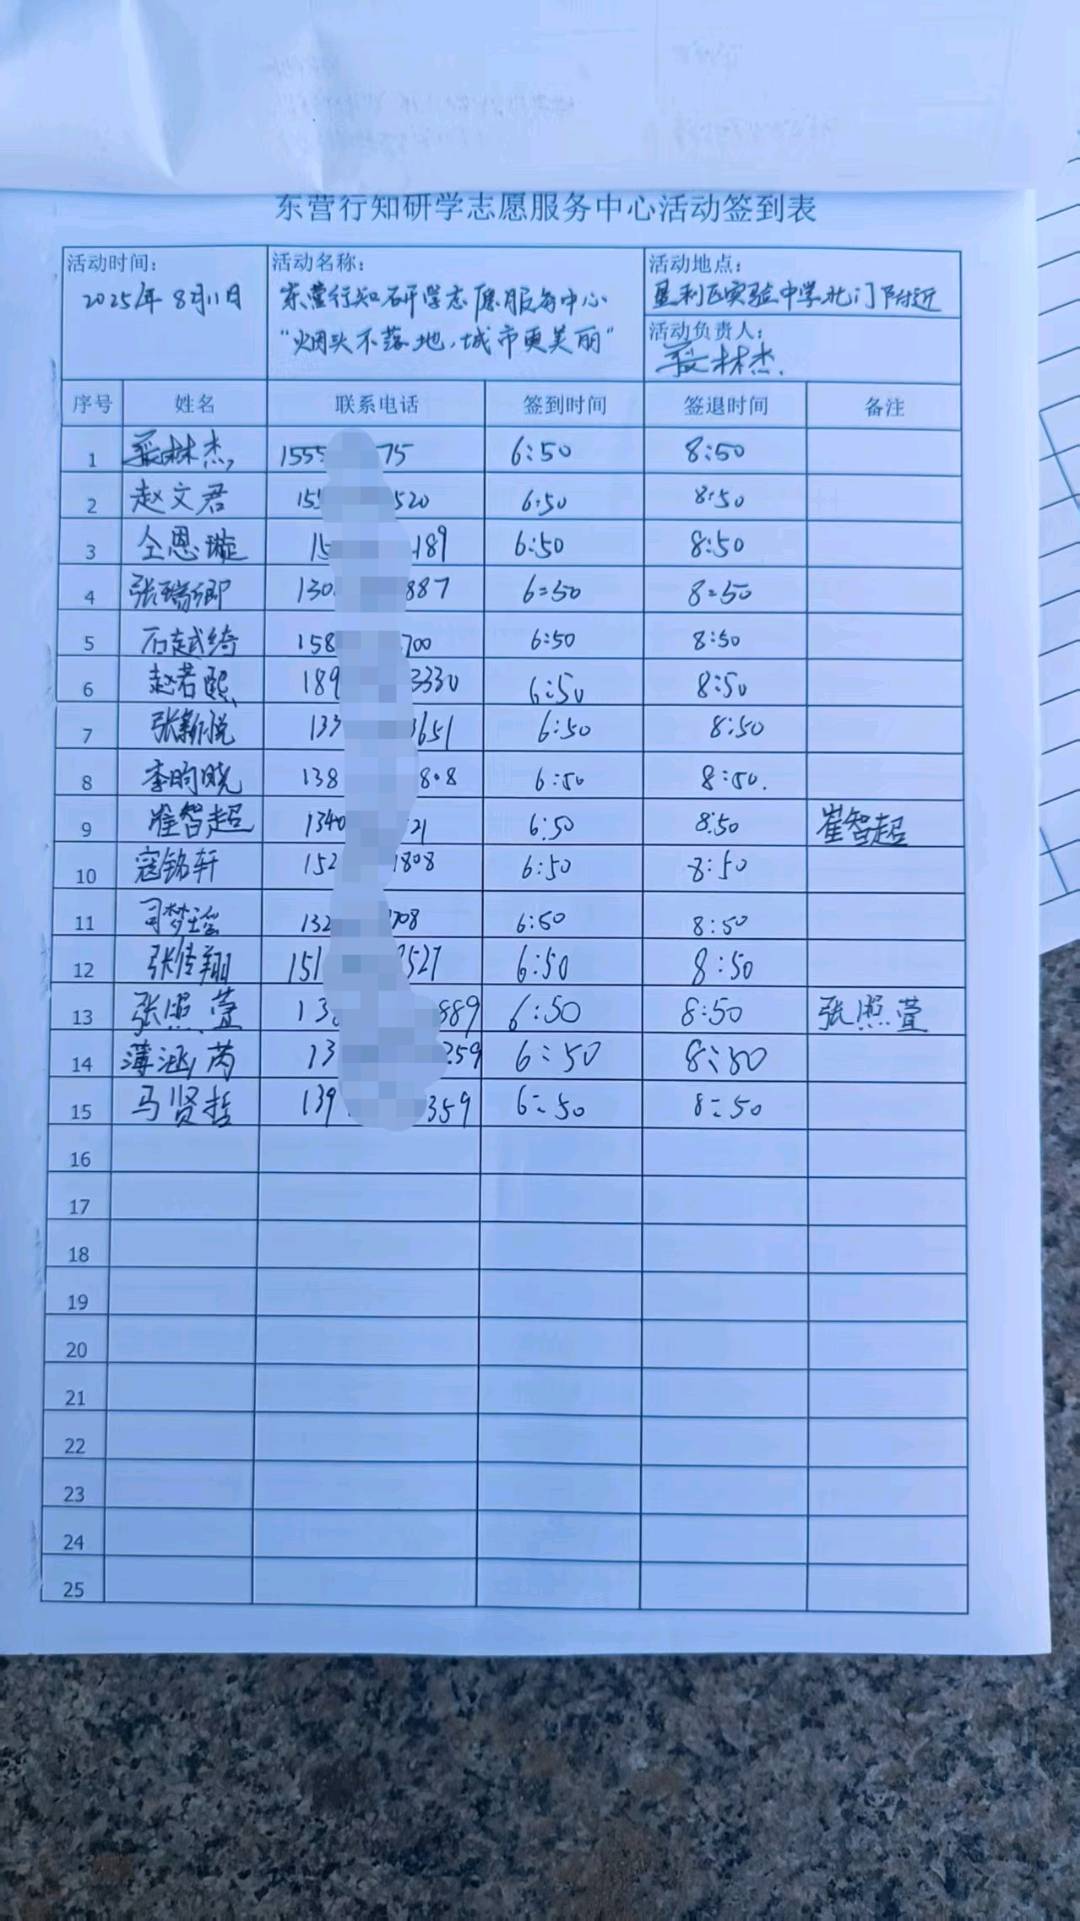 东营行知研学志愿服务中心活动签到表
活动时间：
2025年8月11日
活动名称：
东营行知研学志愿服务中心
"烟头不落地，城市更美丽"
活动地点：
垦利区实验中学北门附近
活动负责人：
林杰
序号 姓名 联系电话 签到时间 签退时间 备注
1 林杰 1555 75 6:50 8:50
2 赵文君 15 520 6:50 8:50
3 仝恩璇 15 189 6:50 8:50
4 张瑞卿 130 887 6:50 8:50
5 石越绮 158 700 6:50 8:50
6 赵若熙 189 3330 6:50 8:50
7 张新悦 133 3651 6:50 8:50
8 李昀晓 138 808 6:50 8:50.
9 崔智超 1340 21 6:50 8:50 崔智超
10 寇铭轩 152 1808 6:50 8:50
11 司梦瑶 132 708 6:50 8:50
12 张佳翔 151 3527 6:50 8:50
13 张照萱 13 889 6:50 8:50 张照萱
14 薄涵芮 13 259 6:50 8:50
15 马贤哲 139 359 6:50 8:50
16
17
18
19
20
21
22
23
24
25